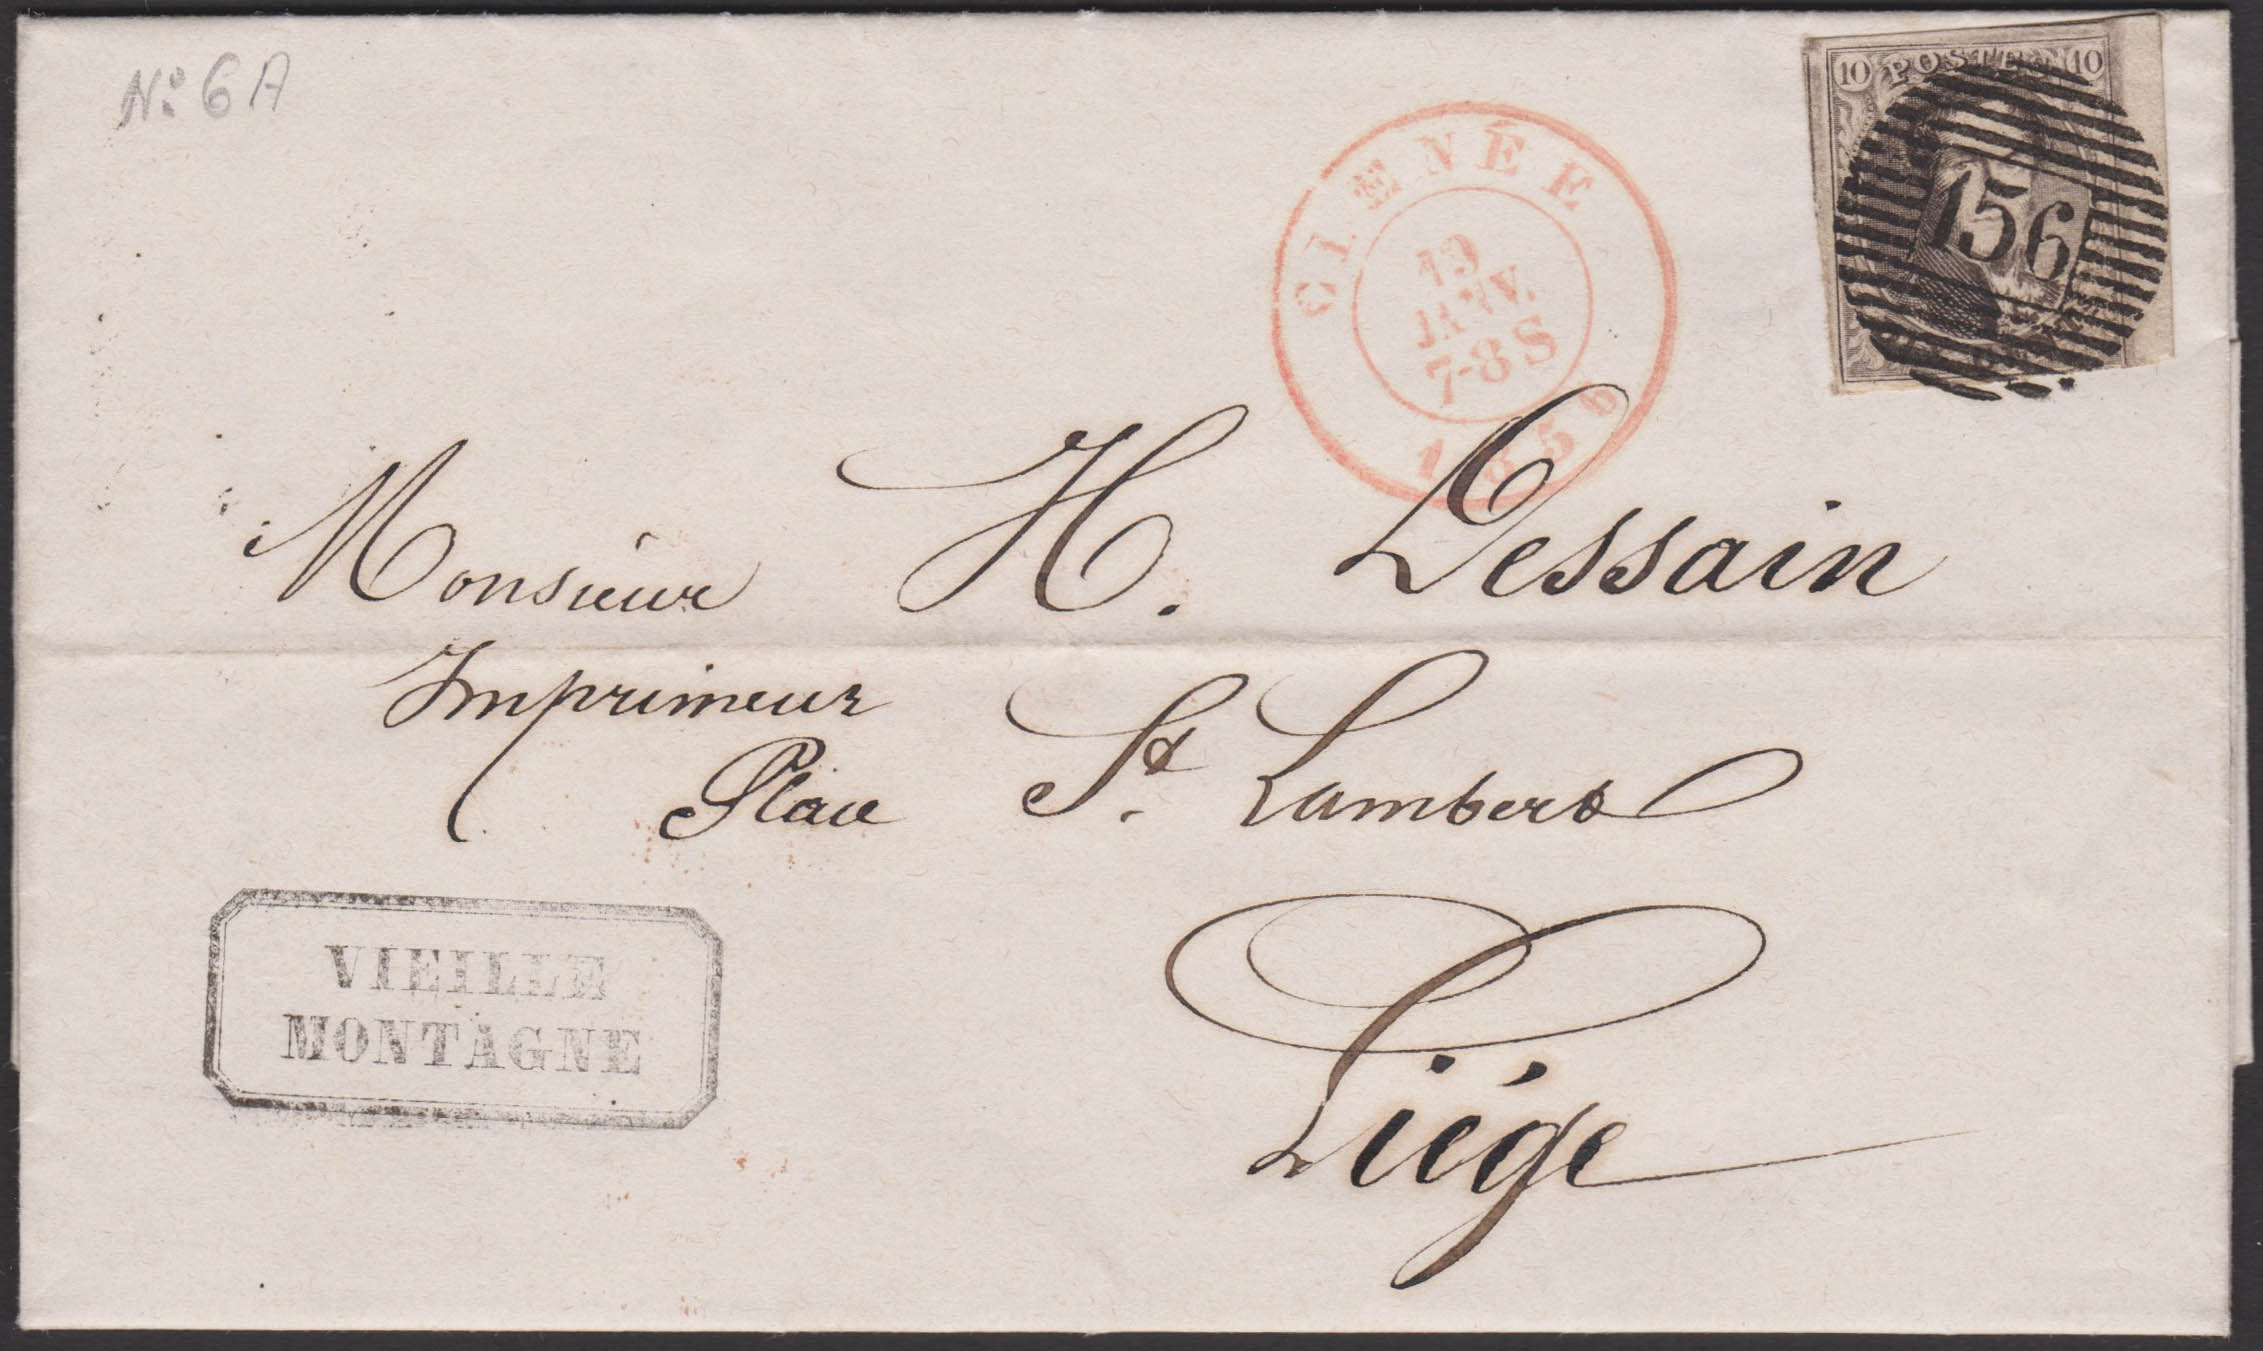 N° 6A
10 POSTES 10
156
CHÊNÉE
19
JANV.
7-8 S
1856
Monsieur H. Dessain
Imprimeur
Place St. Lambert
Liége
VIEILLE
MONTAGNE